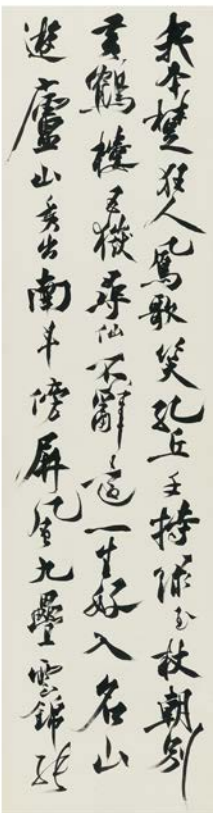 我本楚狂人鳳歌笑孔丘手持綠玉杖朝別
黃鶴樓五嶽尋仙不辭遠一生好入名山
遊廬山秀出南斗傍屏風九疊雲錦張